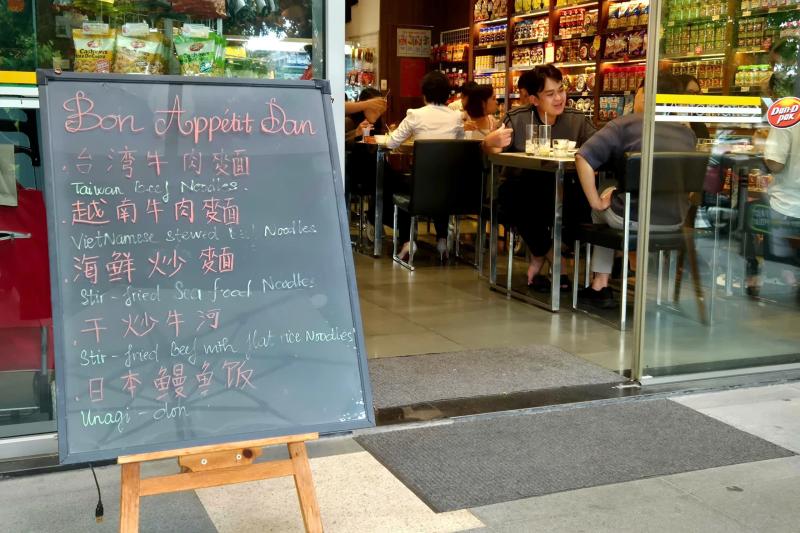 Bon Appétit Dan
台湾牛肉麵
Taiwan Beef Noodles.
越南牛肉麵
VietNamese stewed Beef Noodles
海鲜炒麵
Stir-fried Seafood Noodles
干炒牛河
Stir-fried Beef with flat rice Noodles
日本鰻魚饭
Unagi-don
Dan-D
Pak